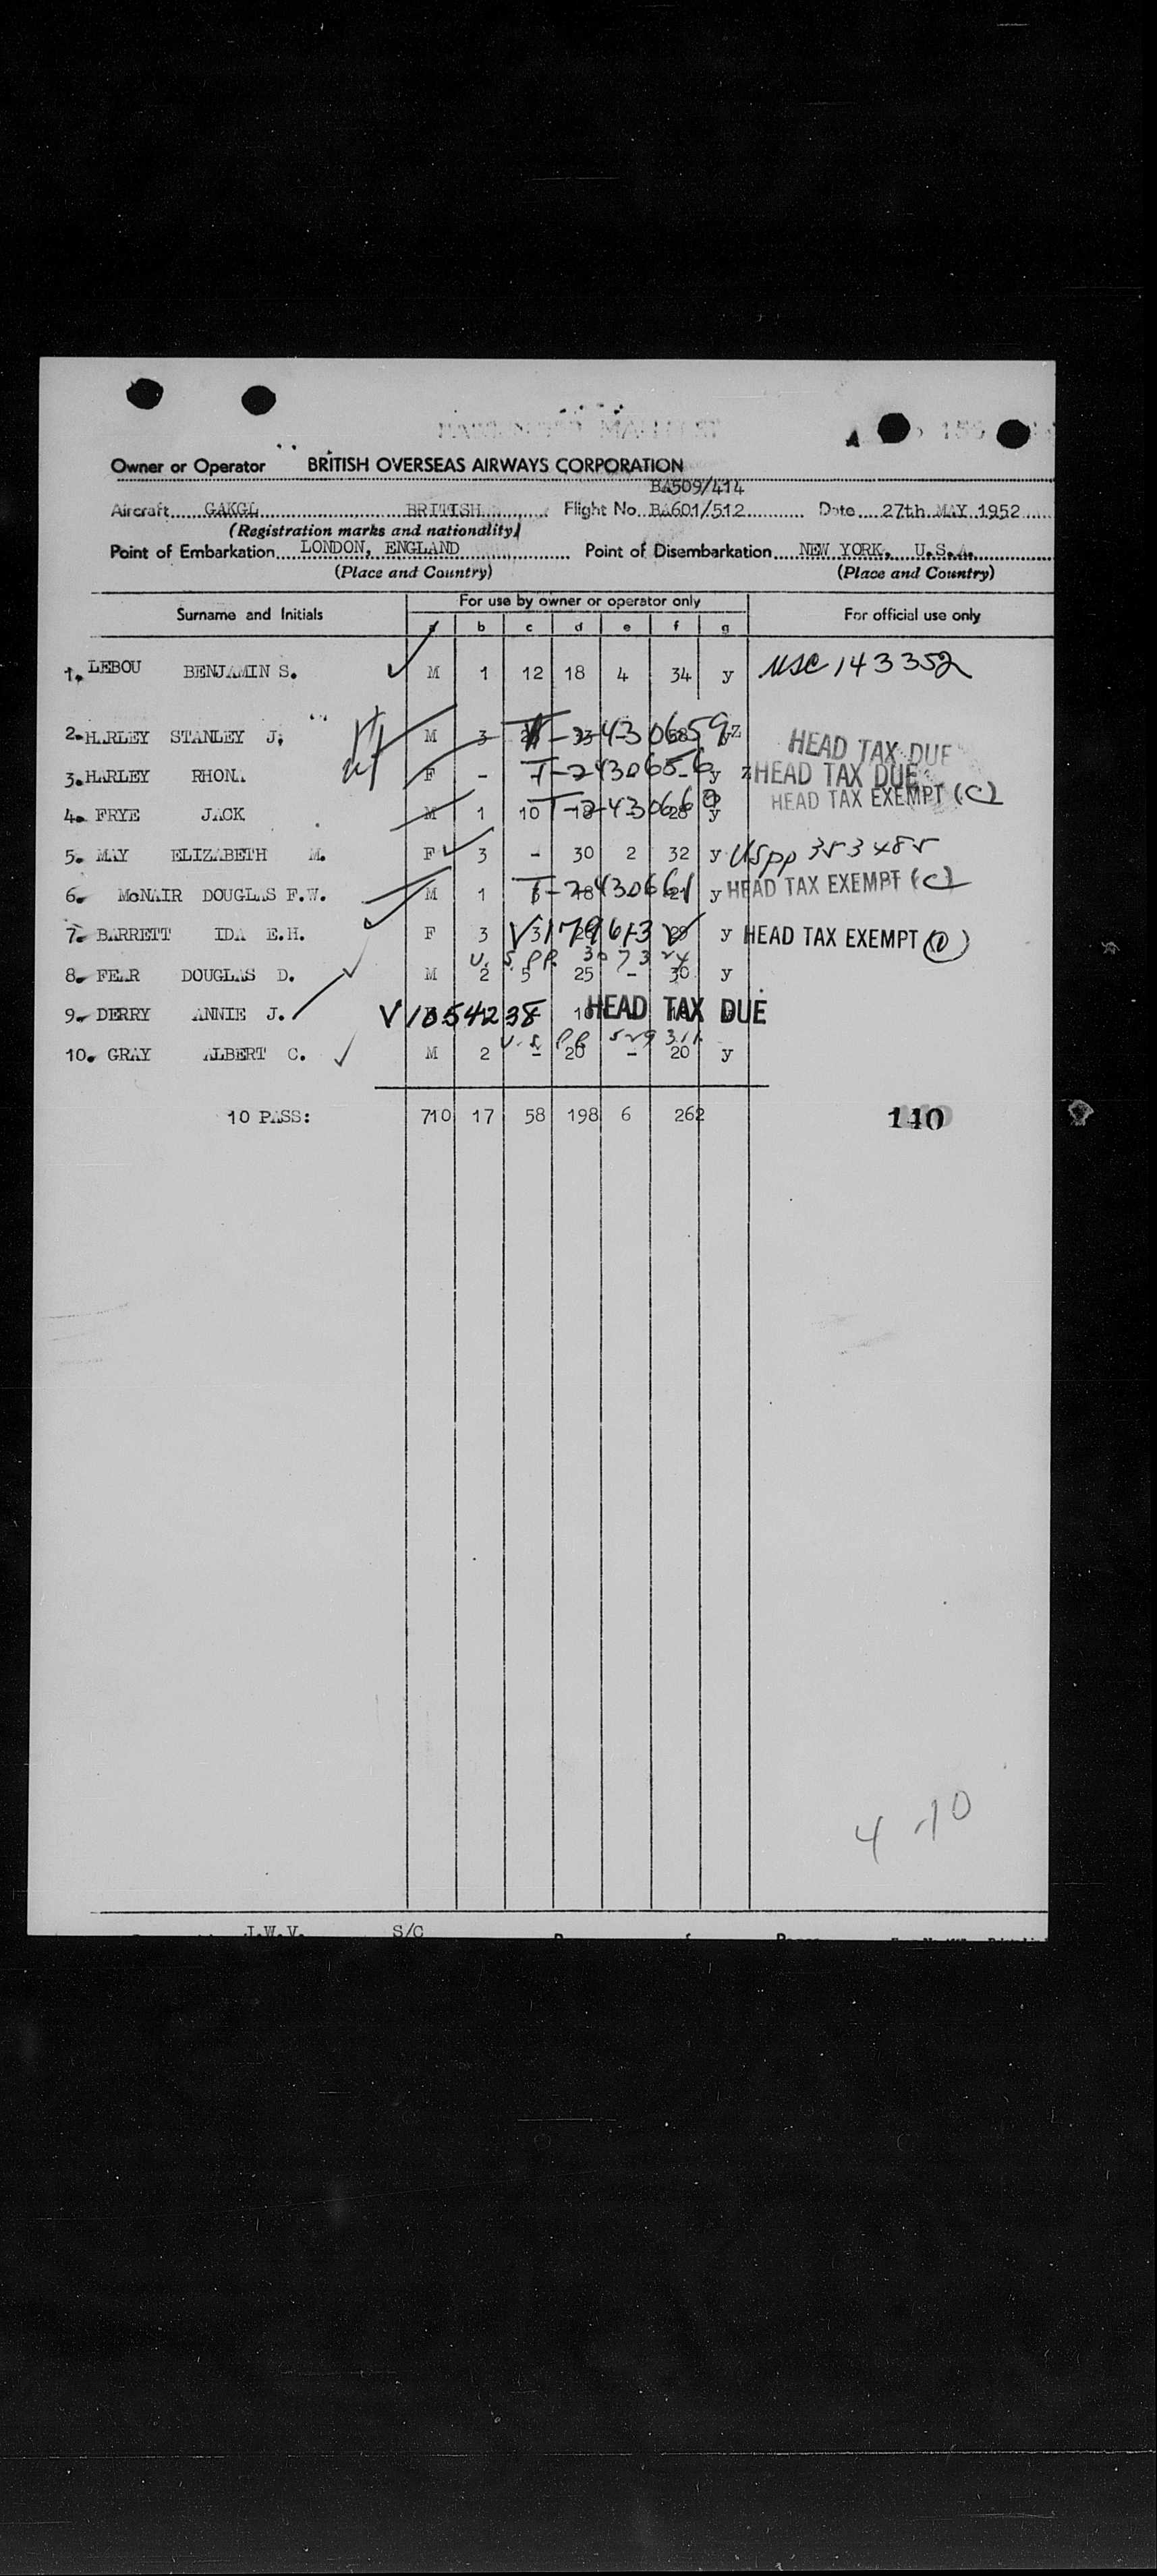 Owner or Operator BRITISH OVERSEAS AIRWAYS CORPORATION
BA509/414
Aircraft GAKGL BRITISH Flight No. BA601/512 Date 27th MAY 1952
(Registration marks and nationality)
Point of Embarkation LONDON, ENGLAND Point of Disembarkation NEW YORK, U.S.A.
(Place and Country) (Place and Country)
Surname and Initials For use by owner or operator only For official use only
a b c d e f g
1. LEBOU BENJAMIN S. M 1 12 18 4 34 y USC 143352
2. HARLEY STANLEY J. M 3 T-2430659 Z HEAD TAX DUE
3. HARLEY RHONA F - T-2430656 y Z HEAD TAX DUE
4. FRYE JACK M 1 10 T-2430660 y HEAD TAX EXEMPT (C)
5. MAY ELIZABETH M. F 3 - 30 2 32 y US pp 353485
6. McNAIR DOUGLAS F.W. M 1 T-2430661 y HEAD TAX EXEMPT (C)
7. BARRETT IDA E.H. F 3 V1179613 y HEAD TAX EXEMPT
U.S. PP. 307324
8. FEAR DOUGLAS D. M 2 5 25 - 30 y
9. DERRY ANNIE J. V1054238 HEAD TAX DUE
U.S. PP 529311
10. GRAY ALBERT C. M 2 - 20 - 20 y
10 PASS: 710 17 58 198 6 262 140
4 10
J.W.V. S/C